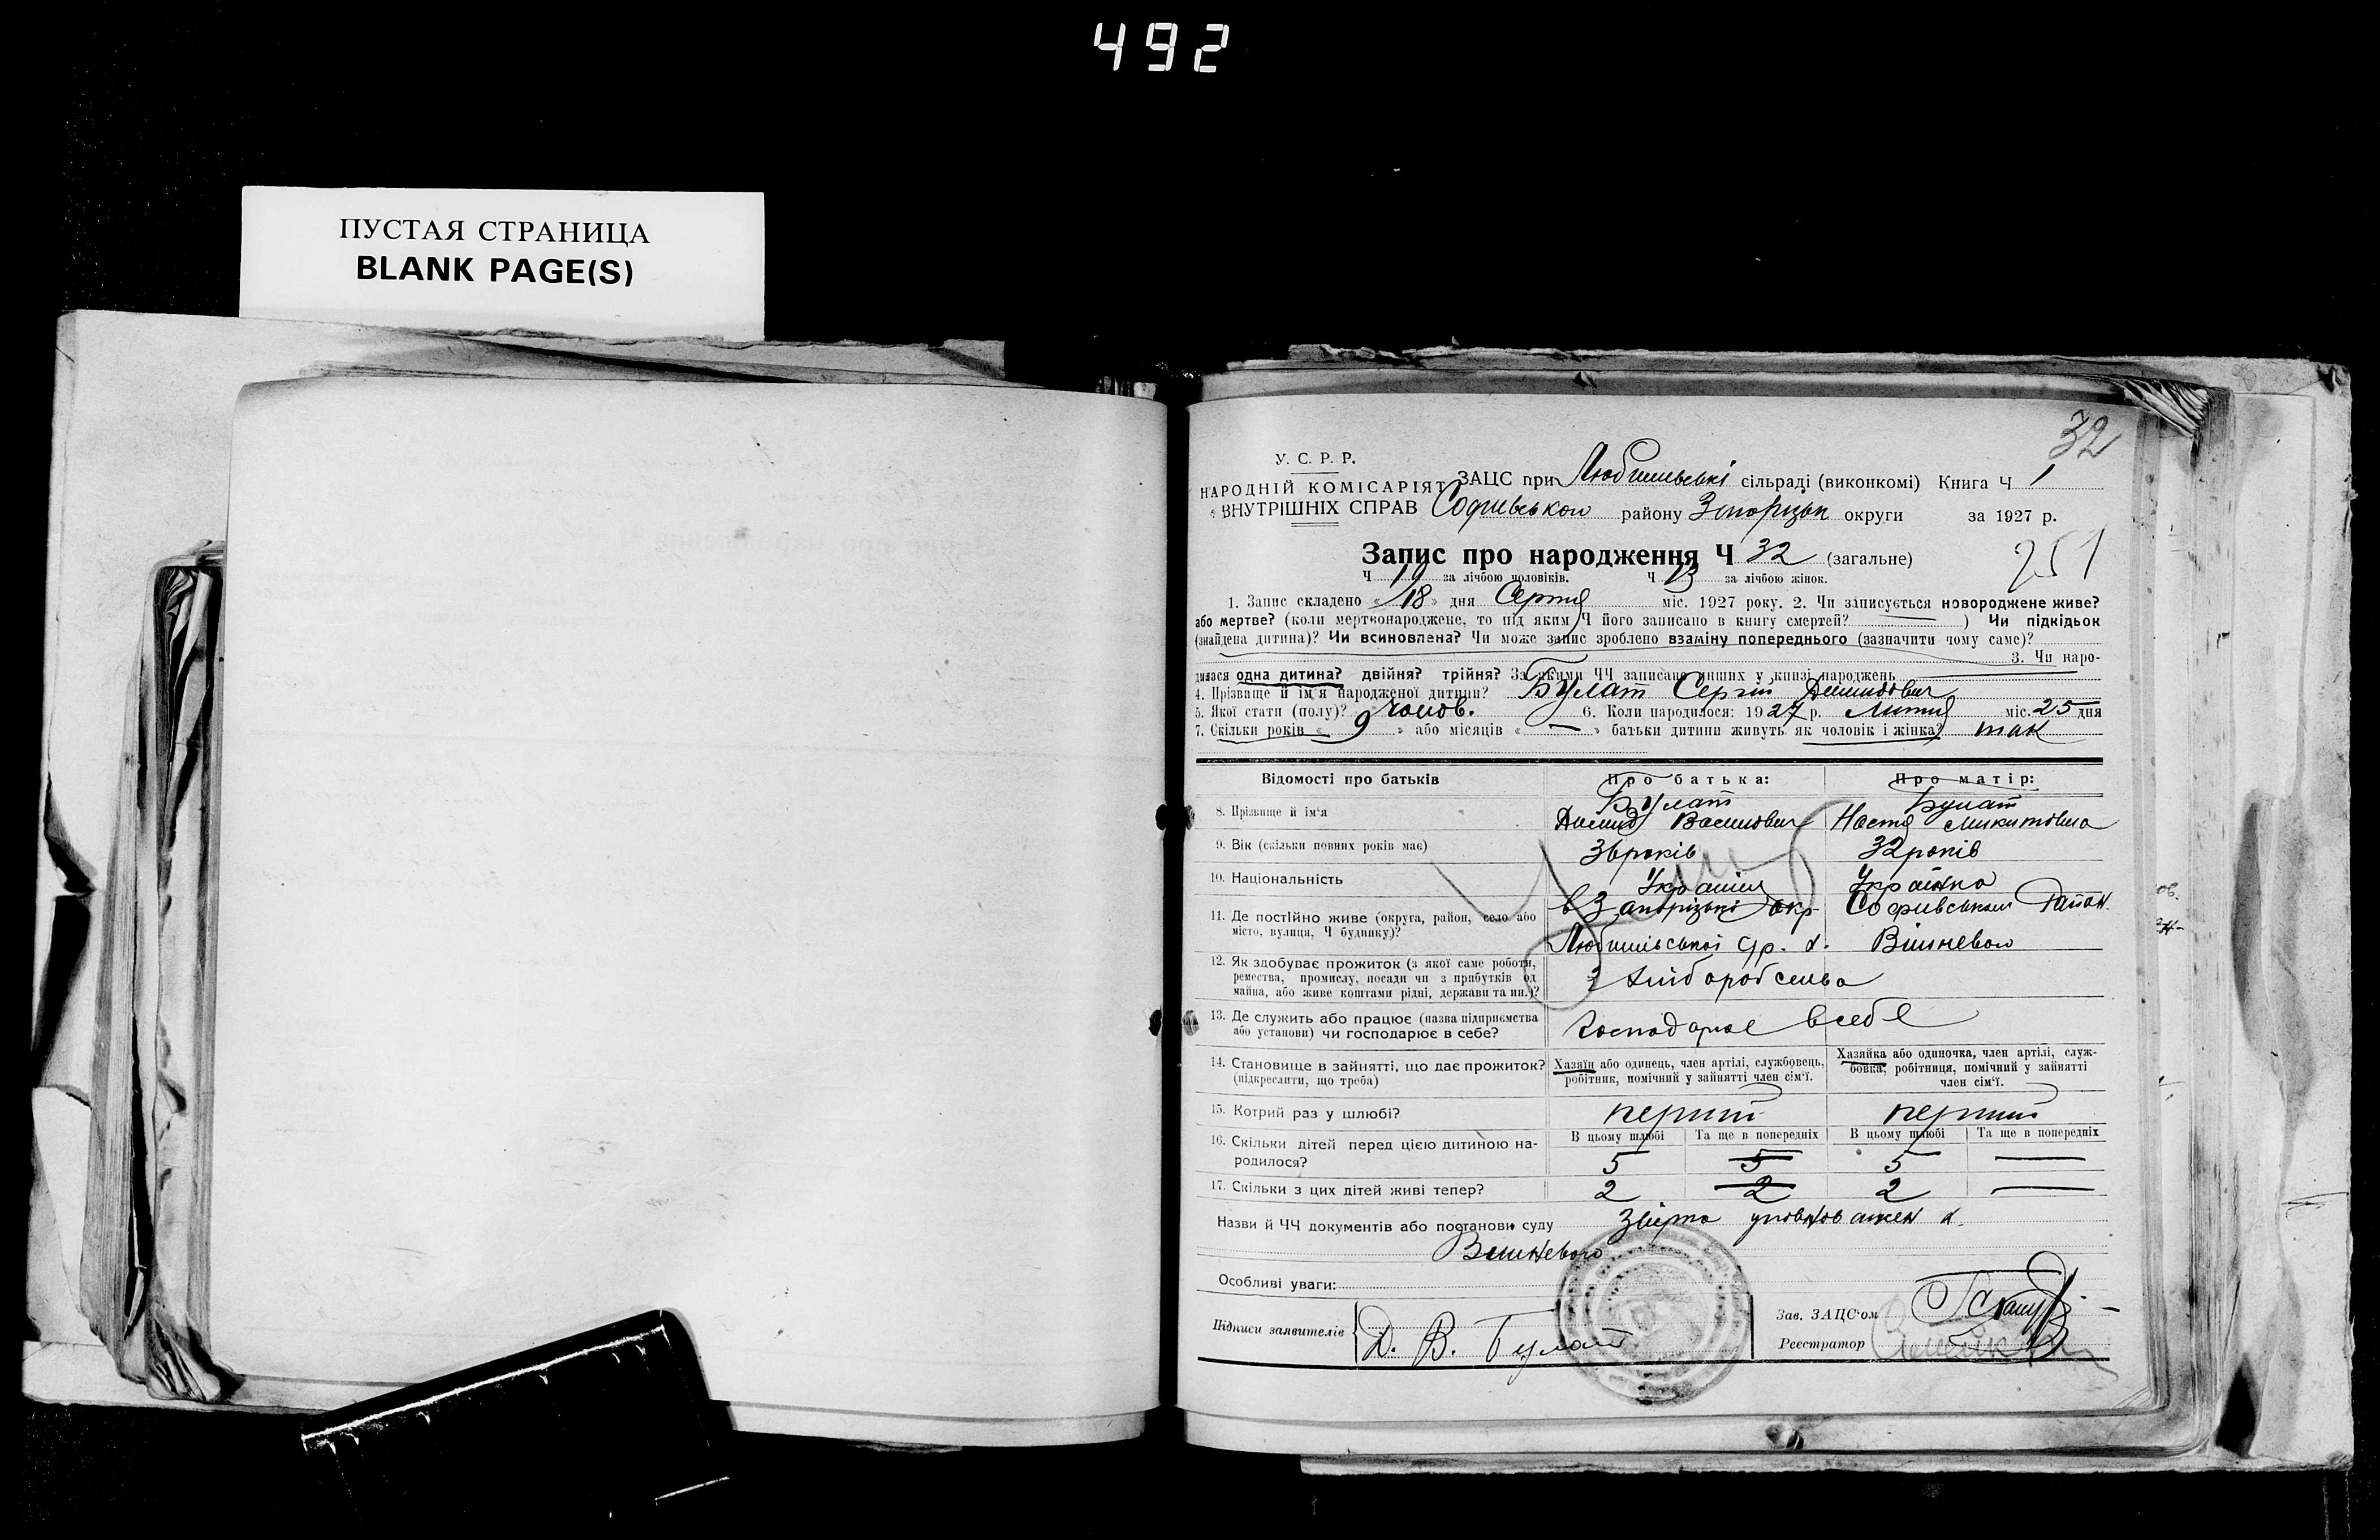 492
ПУСТАЯ СТРАНИЦА
BLANK PAGE(S)
32
У. С. Р. Р.
НАРОДНІЙ КОМІСАРІЯТ ЗАЦС при Любимівські сільраді (виконкомі) Книга Ч 1
ВНУТРІШНІХ СПРАВ Софиївського району Запорізьк округи за 1927 р.
Запис про народження Ч 32 (загальне)
251
Ч 19 за лічбою чоловіків. Ч 13 за лічбою жінок.
1. Запис складено « 18 » дня Серпня міс. 1927 року. 2. Чи записується новороджене живе?
або мертве? (коли мертвонароджене, то під яким Ч його записано в книгу смертей? — ) Чи підкідьок
(знайдена дитина)? Чи всиновлена? Чи може запис зроблено взаміну попереднього (зазначити чому саме)?
3. Чи наро-
дилася одна дитина? двійня? трійня? За якими ЧЧ записано инших у книзі народжень —
4. Прізваще й ім'я народженої дитини? Булат Сергій Демидович
5. Якої стати (полу)? чолов. 6. Коли народилося: 1927 р. Лютня міс. 25 дня
7. Скільки років « 9 » або місяців « — » батьки дитини живуть як чоловік і жінка? так
Відомості про батьків Про батька: Про матір:
8. Прізвище й ім'я Булат Демид Василович Булат Настя Микитовна
9. Вік (скільки повних років має) 36 років 32 років
10. Національність Українец Українка
11. Де постійно живе (округа, район, село або в Запорізькі окр. Софиївського Район.
місто, вулиця, Ч будинку)? Любимівської с/р. х. Вишневого
12. Як здобуває прожиток (з якої саме роботи,
ремества, промислу, посади чи з прибутків од з хліборобсства
майна, або живе коштами рідні, держави та ин.)?
13. Де служить або працює (назва підприємства Господарює в себе
або установи) чи господарює в себе?
14. Становище в зайнятті, що дає прожиток? Хазяїн або одинець, член артілі, службовець, Хазяйка або одиночка, член артілі, служ-
(підкреслити, що треба) робітник, помічний у зайнятті член сім'ї. бовка, робітниця, помічний у зайнятті
член сім'ї.
15. Котрий раз у шлюбі? перший перший
16. Скільки дітей перед цією дитиною на- В цьому шлюбі Та ще в попередніх В цьому шлюбі Та ще в попередніх
родилося? 5 5 5 —
17. Скільки з цих дітей живі тепер? 2 2 2 —
Назви й ЧЧ документів або постанови суду уповноважен х.
Вишневого
Особливі уваги:
Підписи заявителів Д. В. Булат
Зав. ЗАЦС'ом
Реєстратор